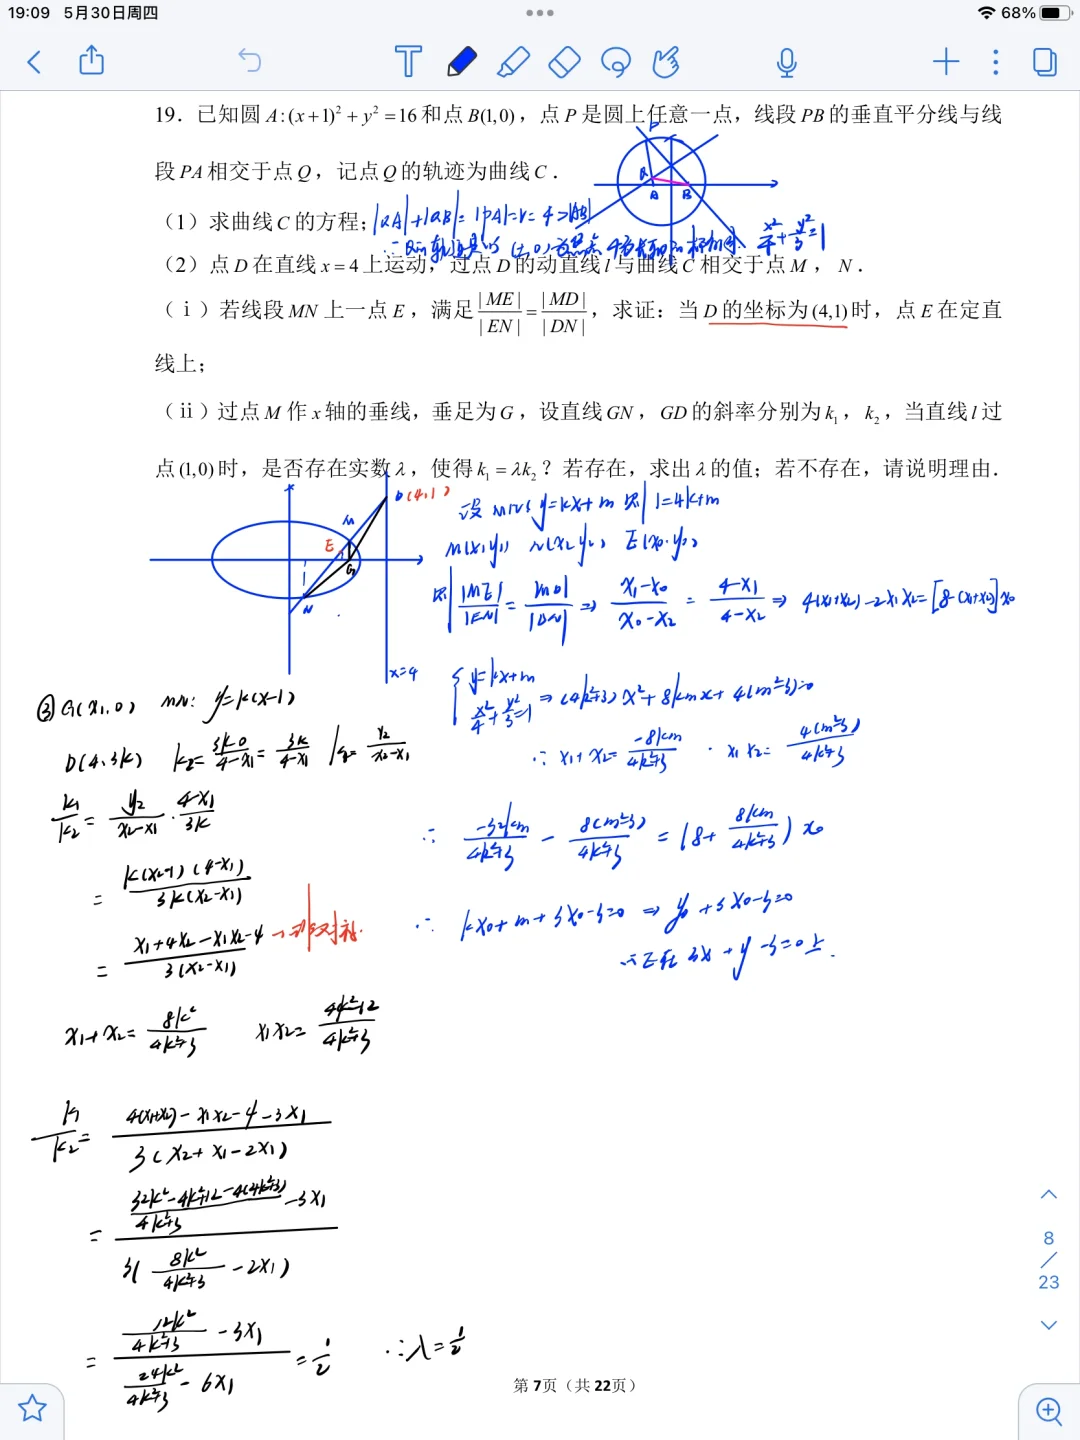 19:09 5月30日周四
68%
19. 已知圆 A:(x+1)²+y²=16和点 B(1,0)，点 P 是圆上任意一点，线段 PB 的垂直平分线与线
段 PA 相交于点 Q，记点 Q 的轨迹为曲线 C．
（1）求曲线 C 的方程；|QA|+|QB|=|PA|=r=4>|AB|
x²/4+y²/3=1
（2）点 D 在直线 x=4 上运动，过点 D 的动直线 l 与曲线 C 相交于点 M，N．
（ⅰ）若线段 MN 上一点 E，满足 |ME|/|EN|=|MD|/|DN|，求证：当 D 的坐标为(4,1)时，点 E 在定直
线上；
（ⅱ）过点 M 作 x 轴的垂线，垂足为 G，设直线 GN，GD 的斜率分别为 k₁，k₂，当直线 l 过
点(1,0)时，是否存在实数 λ，使得 k₁=λk₂？若存在，求出 λ 的值；若不存在，请说明理由．
P
Q
A B
D(4,1)
M
E
G
N
x=4
设 MN: y=kx+m 则 1=4k+m
M(x₁,y₁) N(x₂,y₂) E(x₀,y₀)
则 |ME|/|EN|=|MD|/|DN| ⇒ (x₁-x₀)/(x₀-x₂)=(4-x₁)/(4-x₂) ⇒ 4(x₁+x₂)-2x₁x₂=[8-(x₁+x₂)]x₀
{y=kx+m
x²/4+y²/3=1 ⇒ (4k²+3)x²+8kmx+4(m²-3)=0
∴ x₁+x₂=-8km/(4k²+3) · x₁x₂=4(m²-3)/(4k²+3)
∴ -32km/(4k²+3) - 8(m²-3)/(4k²+3) = (8+8km/(4k²+3))x₀
∴ kx₀+m+3x₀-3=0 ⇒ y₀+3x₀-3=0
∴E在 3x+y-3=0上.
② G(x₁,0) MN: y=k(x-1)
D(4,3k) k₂=(3k-0)/(4-x₁)=3k/(4-x₁) k₁=y₂/(x₂-x₁)
k₁/k₂=y₂/(x₂-x₁)·(4-x₁)/3k
=k(x₂-1)(4-x₁)/3k(x₂-x₁)
=(x₁+4x₂-x₁x₂-4)/3(x₂-x₁) →非对称.
x₁+x₂=8k²/(4k²+3) x₁x₂=(4k²-12)/(4k²+3)
k₁/k₂=(4(x₁+x₂)-x₁x₂-4-3x₁)/3(x₂+x₁-2x₁)
=((32k²-4k²+12-4(4k²+3))/(4k²+3)-3x₁)/3(8k²/(4k²+3)-2x₁)
=(12k²/(4k²+3)-3x₁)/(24k²/(4k²+3)-6x₁)=1/2 ∴λ=1/2
第 7页（共 22页）
8
/
23